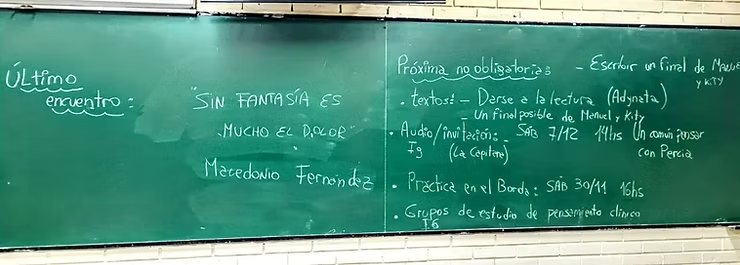 ÚLtimo
encuentro:
"SIN FANTASÍA ES
MUCHO EL DOLOR"
Macedonio Fernández
Próxima no obligatorias - Escribir un final de Manuel
y Kity
• textos: - Darse a la lectura (Adynata)
- Un final posible de Manuel y Kity
• Audio/invitación: - SÁB 7/12 14hs Un común pensar
Ig (La Capitana) con Percia
• Práctica en el Borda: SÁB 30/11 16hs
• Grupos de estudio de pensamiento clínico
IG